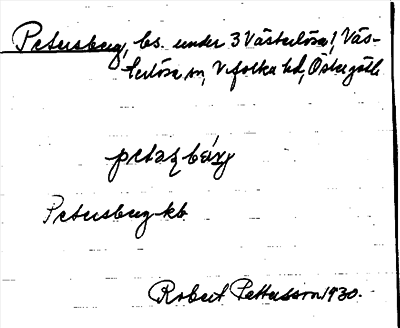 Petersberg, ls. under 3 Västerlösa, Väs-
terlösa sn, Vifolka hd, Östergötl.
Petersberg kb
Robert Pettersson 1930.